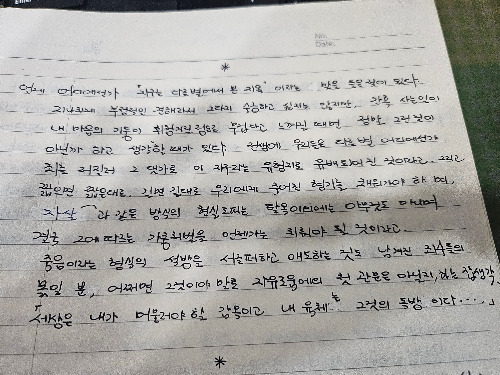 *
언젠 어디에선가 "지구는 다른별에서 본 지옥" 이라는 말을 들은적이 있다.
지나치게 부정적인 견해라서 그다지 수긍하고 싶지는 않지만, 가끔 사는일이
내 마음의 기둥이 휘청거릴 정도로 무겁다고 느껴질 때면 정말 그런것이
아닌가 하고 생각할 때가 있다. 전생에 우리들은 다른별 어디에선가
죄를 저질러 그 댓가로 이 지구라는 유형지로 유배되어진 것이라고. 그리고
짧으면 짧은대로, 길면 길대로 우리에게 주어진 형기를 채워가야 하며,
자살 과 같은 방식의 현실도피는 탈옥이외에는 아무것도 아니며
결국 그에 따르는 가중처벌을 언젠가는 치뤄야 될 것이라고.
죽음이라는 형식의 석방을 서글퍼하고 애도하는 것도 남겨진 죄수들의
몫일 뿐, 어쩌면 그것이야 말로 자유로움에의 첫 관문은 아닐지, 하는 생각
"세상은 내가 머물러야 할 감옥이고 내 육체는 그것의 독방 이다‥‥"
*